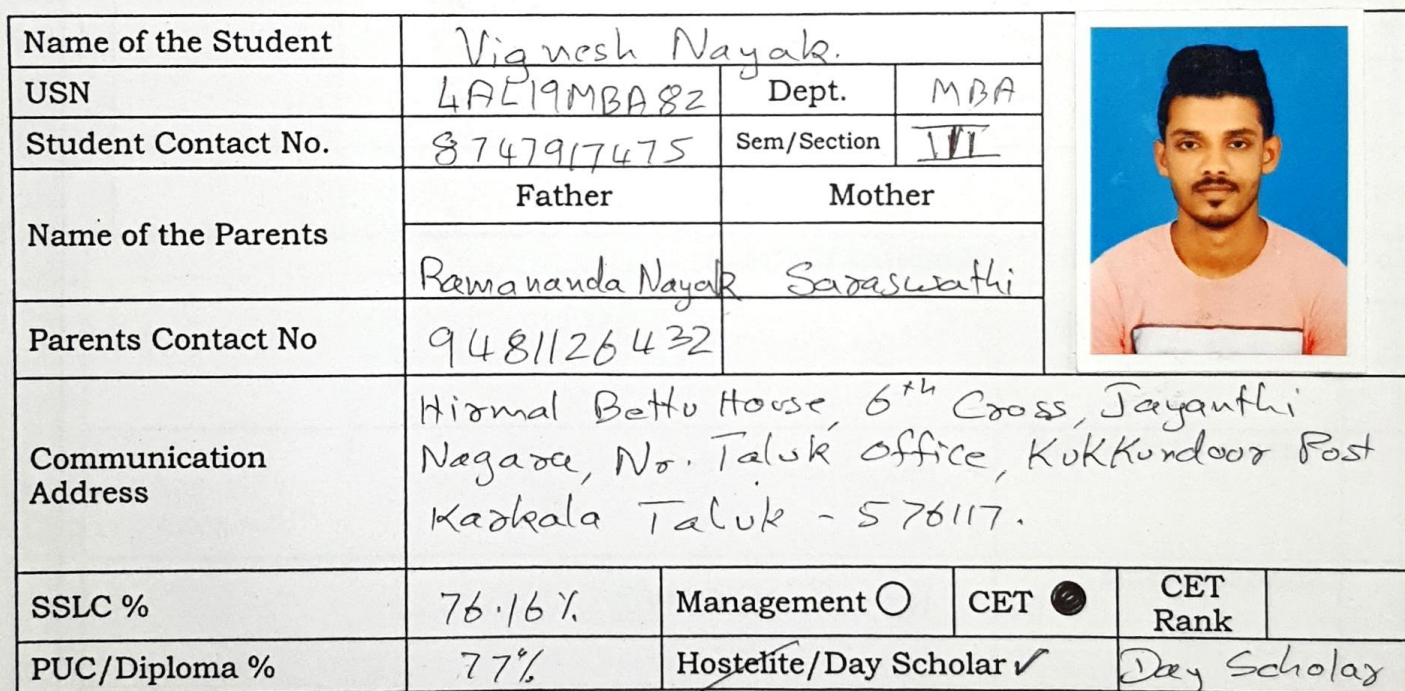 Name of the Student Vignesh Nayak.
USN 4AL19MBA82 Dept. MBA
Student Contact No. 8747917475 Sem/Section III
Father Mother
Name of the Parents
Ramananda Nayak Saraswathi
Parents Contact No 9481126432
Hirmal Bettu House, 6th Cross, Jayanthi
Communication Nagara, Nr. Taluk Office, Kukkundoor Post
Address
Karkala Taluk - 576117.
SSLC % 76.16% Management CET CET Rank
PUC/Diploma % 77% Hostelite/Day Scholar ✓ Day Scholar